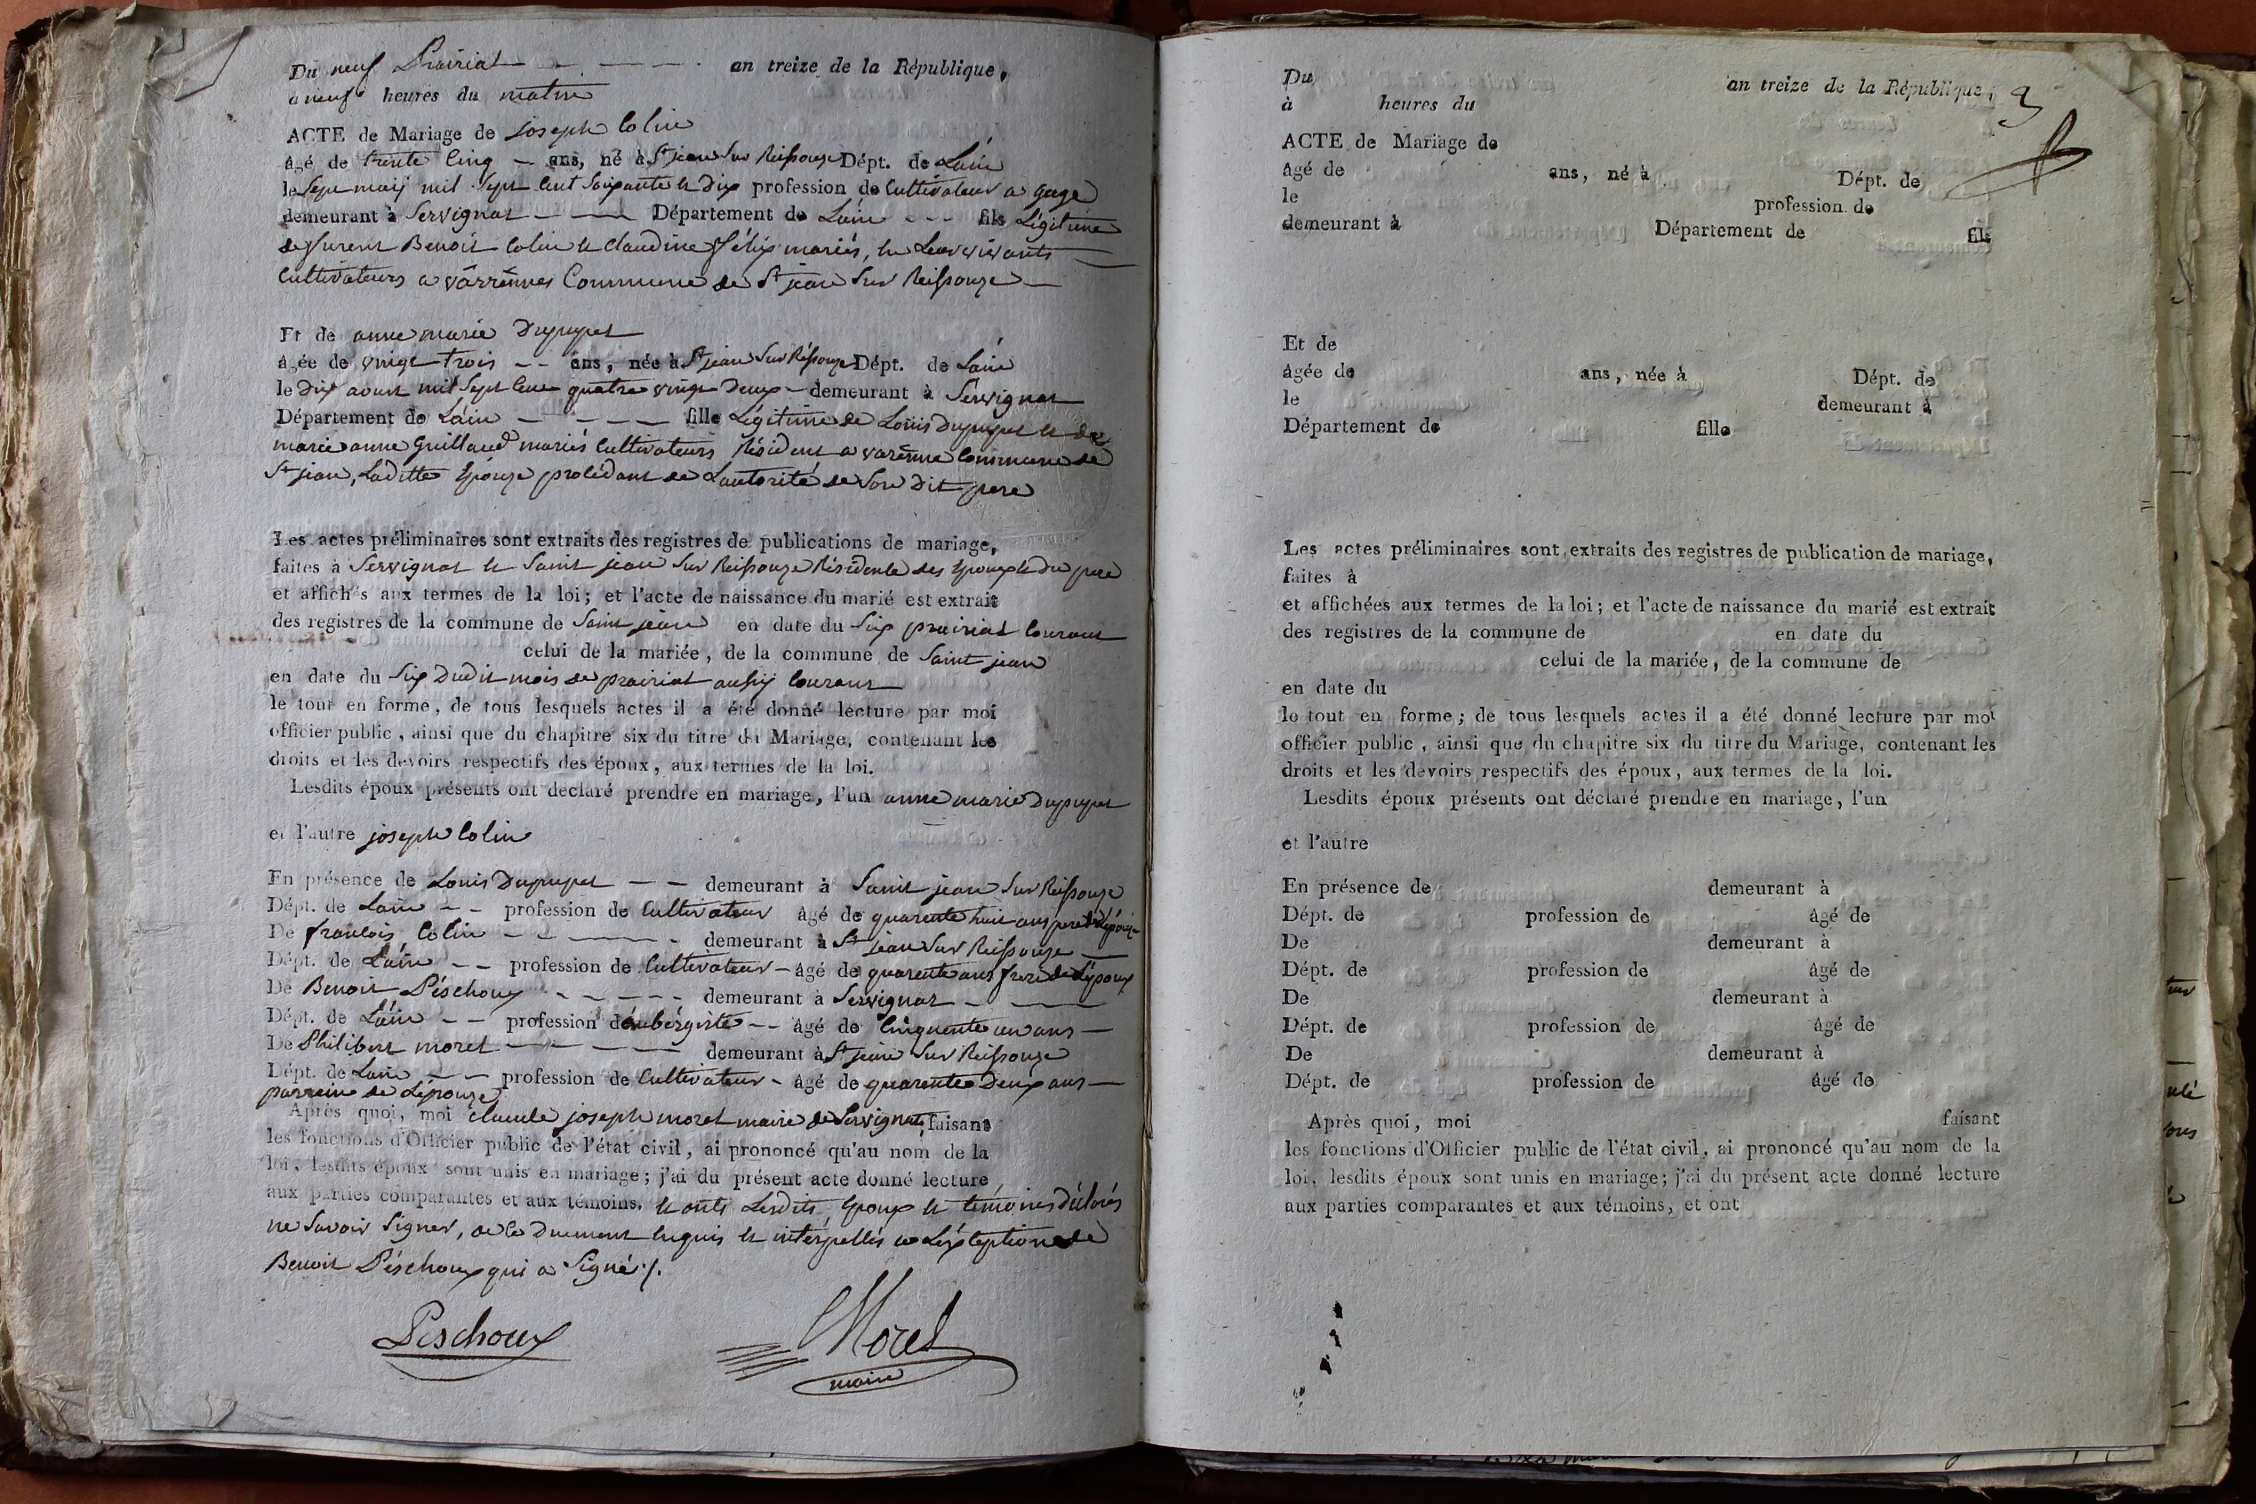 Du neuf Prairial - - - - an treize de la République,
à neuf heures du matin
ACTE de Mariage de joseph Colin
âgé de trente Cinq - ans, né à St jean Sur Reissouze Dépt. de Lain
le Sept maij mil Sept Cent Soixante et dix profession de Cultivateur a gage
demeurant à Servignat - - - Département de Lain - - - fils Légitime
de furent Benoit Colin et Claudine félix mariés, en Leur vivants
Cultivateurs a varrennes Commune de St jean Sur Reissouze
Et de anne marie Dupupet
âgée de vingt trois - - ans, née à St jean Sur Réssouze Dépt. de Lain
le Dix aoust mil Sept Cent quatre vingt Deux - demeurant à Servignat
Département de Láin - - - - fille Légitime de Louis Dupupet et de
marie anne Guillaud mariés Cultivateurs Résident a varenne Commune de
St jean, Laditte Epouze procédant de Lautorité de Son Dit pere
Les actes préliminaires sont extraits des registres de publications de mariage,
faites à Servignat et Saint jean Sur Reissouze Résidence des Epoux et du pere
et affichés aux termes de la loi; et l'acte de naissance du marié est extrait
des registres de la commune de Saint jean en date du Six prairial Courant
celui de la mariée, de la commune de Saint jean
en date du Six Dudit mois de prairial aussy Courant
le tout en forme, de tous lesquels actes il a été donné lecture par moi
officier public, ainsi que du chapitre six du titre du Mariage, contenant les
droits et les devoirs respectifs des époux, aux termes de la loi.
Lesdits époux présents ont déclaré prendre en mariage, l'un anne marie Dupupet
et l'autre joseph Colin
En présence de Louis Dupupet - - demeurant à Saint jean Sur Reissouze
Dépt. de Lain - - profession de Cultivateur âgé de quarente huit ans pere de Lépouze
De francois Colin - - - - demeurant à St jean Sur Reissouze
Dépt. de Láin - - profession de Cultivateur - âgé de quarente ans frere de Lépoux
De Benoit Péschoux - - - - - demeurant à Servignat - - -
Dépt. de Láin - - profession d'aubérgiste - - âgé de Cinquente un ans -
De Philibert moret - - - - demeurant à St jean Sur Reissouze
Dépt. de Lain - - profession de Cultivateur - âgé de quarente Deux ans -
parrein de Lépouze
Après quoi, moi Claude joseph moret maire de Servignat, faisant
les fonctions d'Officier public de l'état civil, ai prononcé qu'au nom de la
loi, lesdits époux sont unis en mariage; j'ai du présent acte donné lecture
aux parties comparantes et aux témoins, et onts Lesdits Epoux et témoins déclarés
ne Savoir Signer, de ce Duement Enquis et intérpellés a Léxception de
Benoit Péschoux qui a Signé ./.
Peschoux
Moret
maire
Du an treize de la République, 3
à heures du
ACTE de Mariage de
âgé de ans, né à Dépt. de
le profession de
demeurant à Département de fils
Et de
âgée de ans, née à Dépt. de
le demeurant à
Département de fille
Les actes préliminaires sont extraits des registres de publication de mariage,
faites à
et affichées aux termes de la loi; et l'acte de naissance du marié est extrait
des registres de la commune de en date du
celui de la mariée, de la commune de
en date du
le tout en forme; de tous lesquels actes il a été donné lecture par moi
officier public, ainsi que du chapitre six du titre du Mariage, contenant les
droits et les devoirs respectifs des époux, aux termes de la loi.
Lesdits époux présents ont déclaré prendre en mariage, l'un
et l'autre
En présence de demeurant à
Dépt. de profession de âgé de
De demeurant à
Dépt. de profession de âgé de
De demeurant à
Dépt. de profession de âgé de
De demeurant à
Dépt. de profession de âgé de
Après quoi, moi faisant
les fonctions d'Officier public de l'état civil, ai prononcé qu'au nom de la
loi, lesdits époux sont unis en mariage; j'ai du présent acte donné lecture
aux parties comparantes et aux témoins, et ont